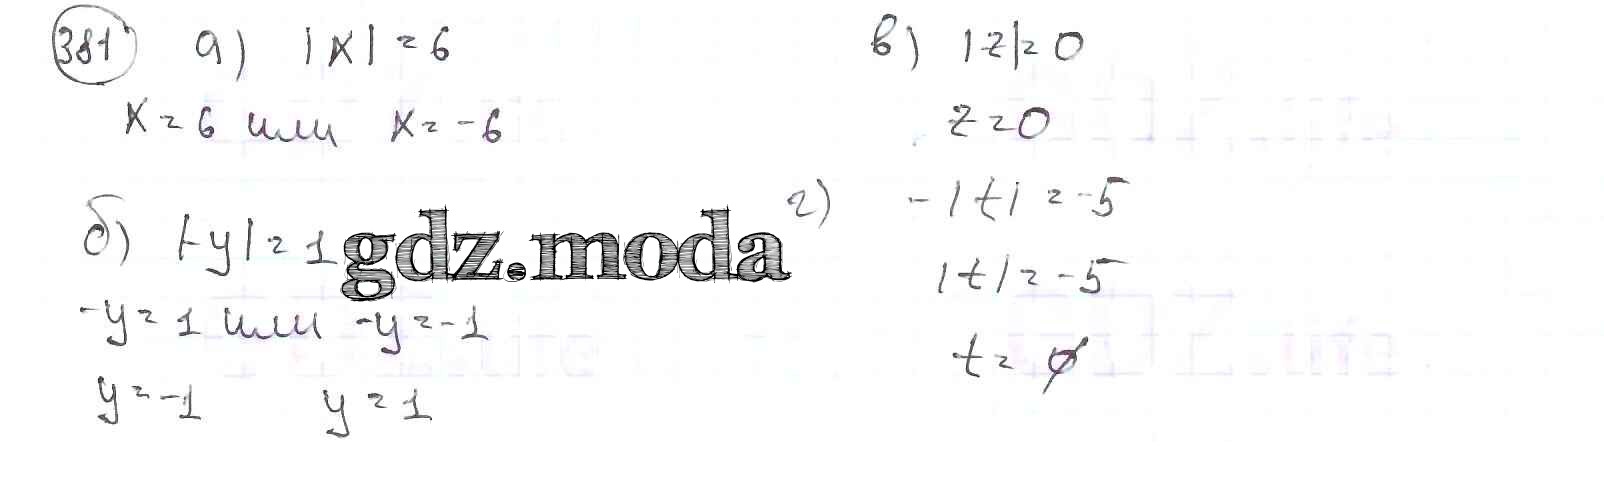 381 а) |x| = 6
x = 6 или x = -6
б) |-y| = 1
-y = 1 или -y = -1
y = -1 y = 1
gdz.moda
в) |z| = 0
z = 0
г) -|t| = -5
|t| = -5
t = ∅